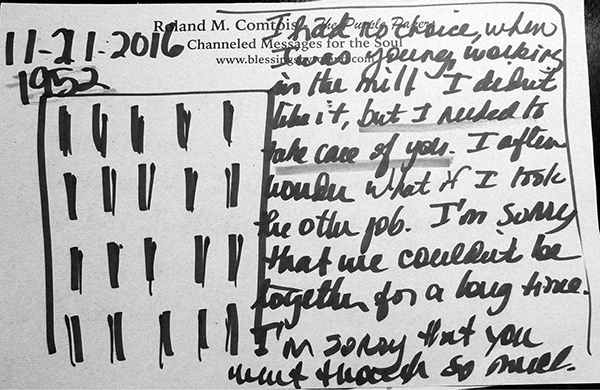 Roland M. Comtois The Purple Papers
Channeled Messages for the Soul
11-21-2016
1952
I had no choice, when
I was young, working
in the mill I didn't
like it, but I needed to
take care of you. I often
wonder what if I took
the other job. I'm sorry
that we couldn't be
together for a long time.
I'm sorry that you
went through so much.